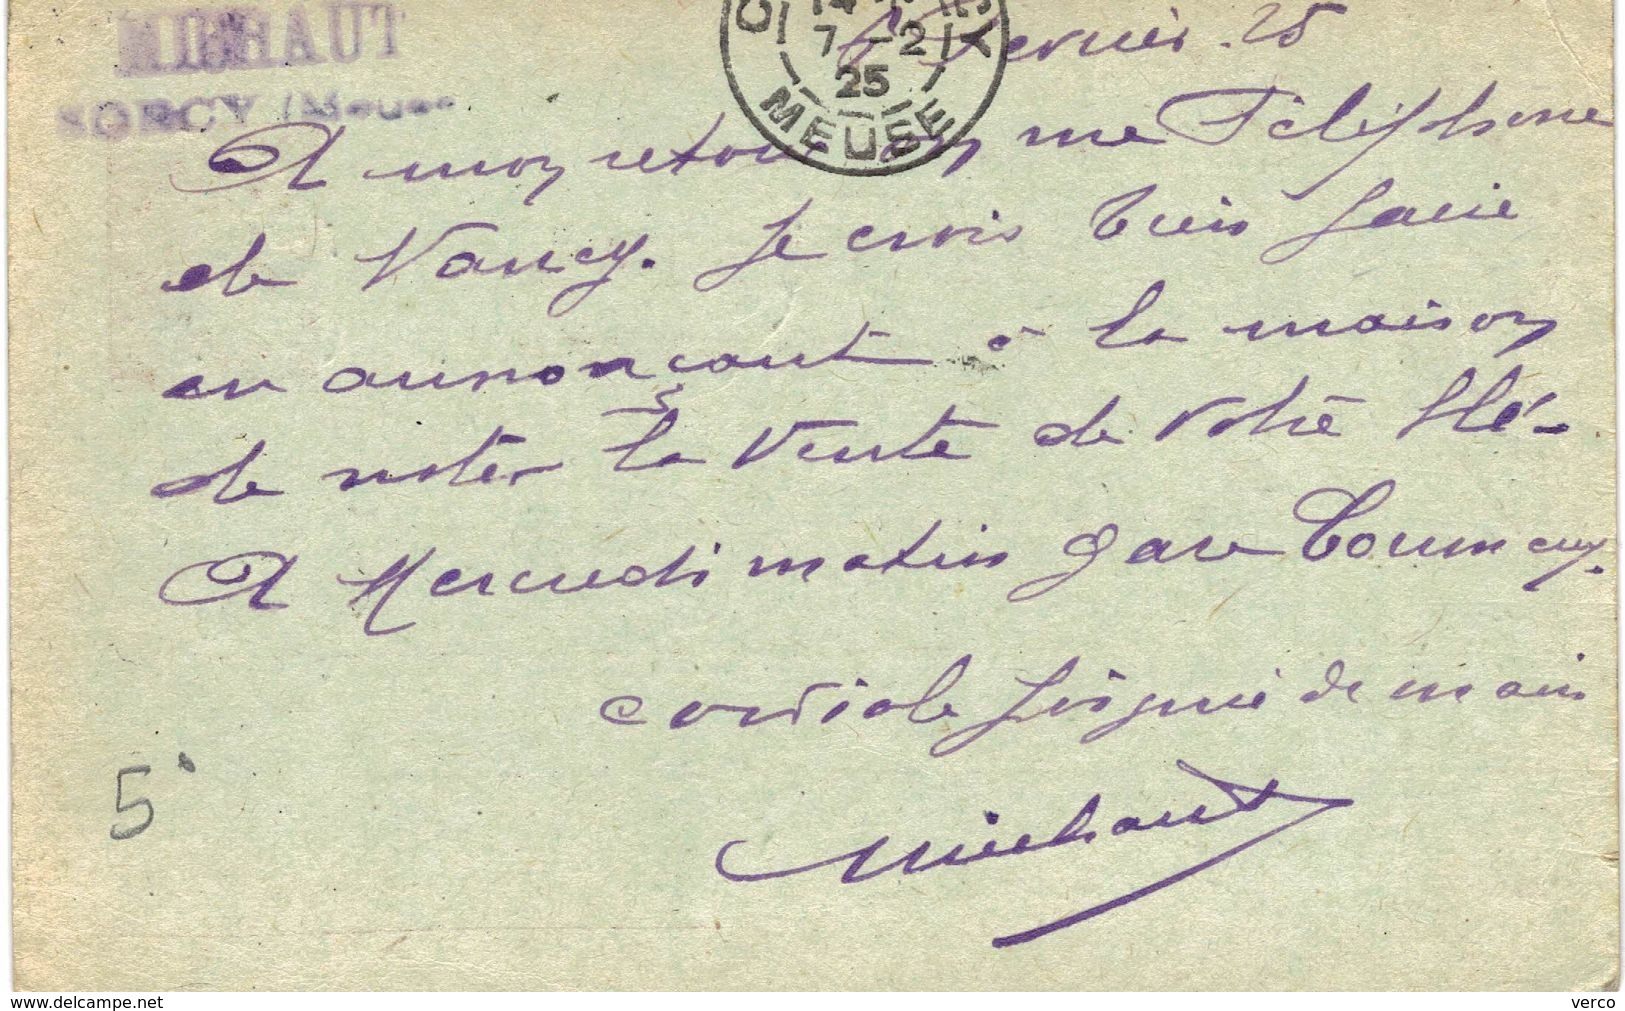 MICHAUT
SORCY (Meuse
7 - 2
25
MEUSE
Fevrier . 25
A mon retour on me Téléphone
de Nancy. Je crois bien faire
en annonçant à la maison
de noter la Vente de Votre blé -
A Mercredi matin gare Commercy.
cordiale poignée de main
Michaut
5
www.delcampe.net
verco